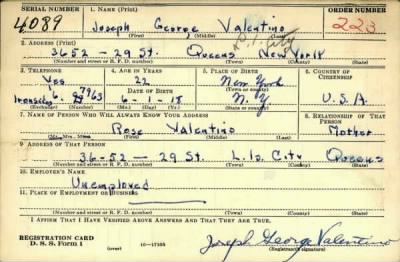 SERIAL NUMBER 1. NAME (Print) ORDER NUMBER
4089 Joseph George Valentino 223
(First) (Middle) (Last)
2. ADDRESS (Print)
36-52 — 29 St. Queens New York
(Number and street or R. F. D. number) (Town) (County) (State)
3. TELEPHONE 4. AGE IN YEARS 5. PLACE OF BIRTH 6. COUNTRY OF CITIZENSHIP
Yes 22 New York
DATE OF BIRTH (Town or county)
Ironsides 6-7963 6-1-18 N.Y. U.S.A.
(Exchange) (Number) (Mo.) (Day) (Yr.) (State or country)
7. NAME OF PERSON WHO WILL ALWAYS KNOW YOUR ADDRESS 8. RELATIONSHIP OF THAT PERSON
Rose Valentino Mother
(Mr., Mrs., Miss) (First) (Middle) (Last)
9. ADDRESS OF THAT PERSON
36-52 — 29 St. L.Is. City Queens
(Number and street or R. F. D. number) (Town) (County) (State)
10. EMPLOYER'S NAME
Unemployed
11. PLACE OF EMPLOYMENT OR BUSINESS
(Number and street or R. F. D. number) (Town) (County) (State)
I AFFIRM THAT I HAVE VERIFIED ABOVE ANSWERS AND THAT THEY ARE TRUE.
REGISTRATION CARD
D. S. S. Form 1 (over) 16—17105 Joseph George Valentino
(Registrant's signature)